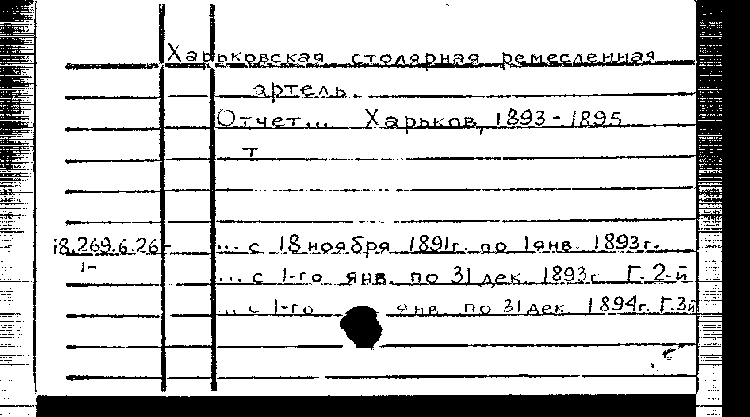 Харьковская столярная ремесленная
артель.
Отчет... Харьков, 1893-1895
т
18.269.6.26 ... с 18 ноября 1891г. по 1 янв. 1893г.
1- ... с 1-го янв. по 31 дек. 1893г. Г. 2-й
... с 1-го янв. по 31 дек. 1894г. Г. 3й